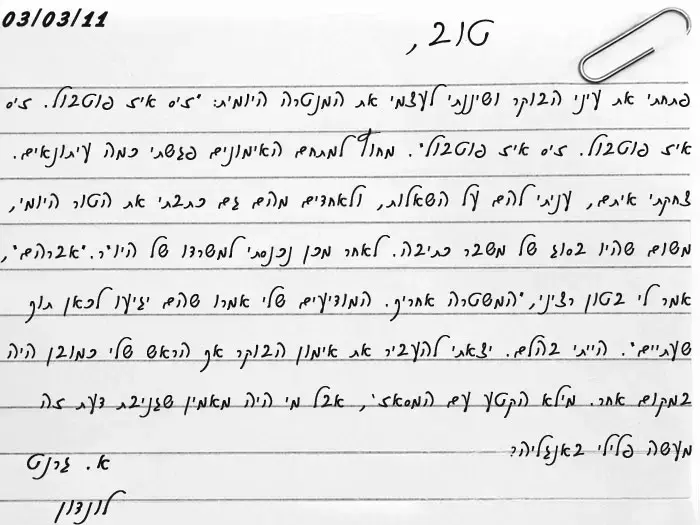 03/03/11
טוב,
פתחתי את עיני הבוקר ושיננתי לעצמי את המנטרה היומית: "זיס איז פוטבול. זיס
איז פוטבול. זיס איז פוטבול". מחוץ למתחם האימונים פגשתי כמה עיתונאים.
צחקתי איתם, עניתי להם על השאלות, ולאחדים מהם גם כתבתי את הטור היומי,
משום שהיו בסוג של משבר כתיבה. לאחר מכן נכנסתי למשרדו של היו"ר. "אברהם",
אמר לי בטון רציני, "המשטרה אחריך. המודיעים שלי אמרו שהם יגיעו לכאן תוך
שעתיים". הייתי בהלם. יצאתי להעביר את אימון הבוקר אך הראש שלי כמובן היה
במקום אחר. מילא הקטע עם המסאז', אבל מי היה מאמין שגניבת דעת זה
מעשה פלילי באנגליה?
א. גרנט
לונדון